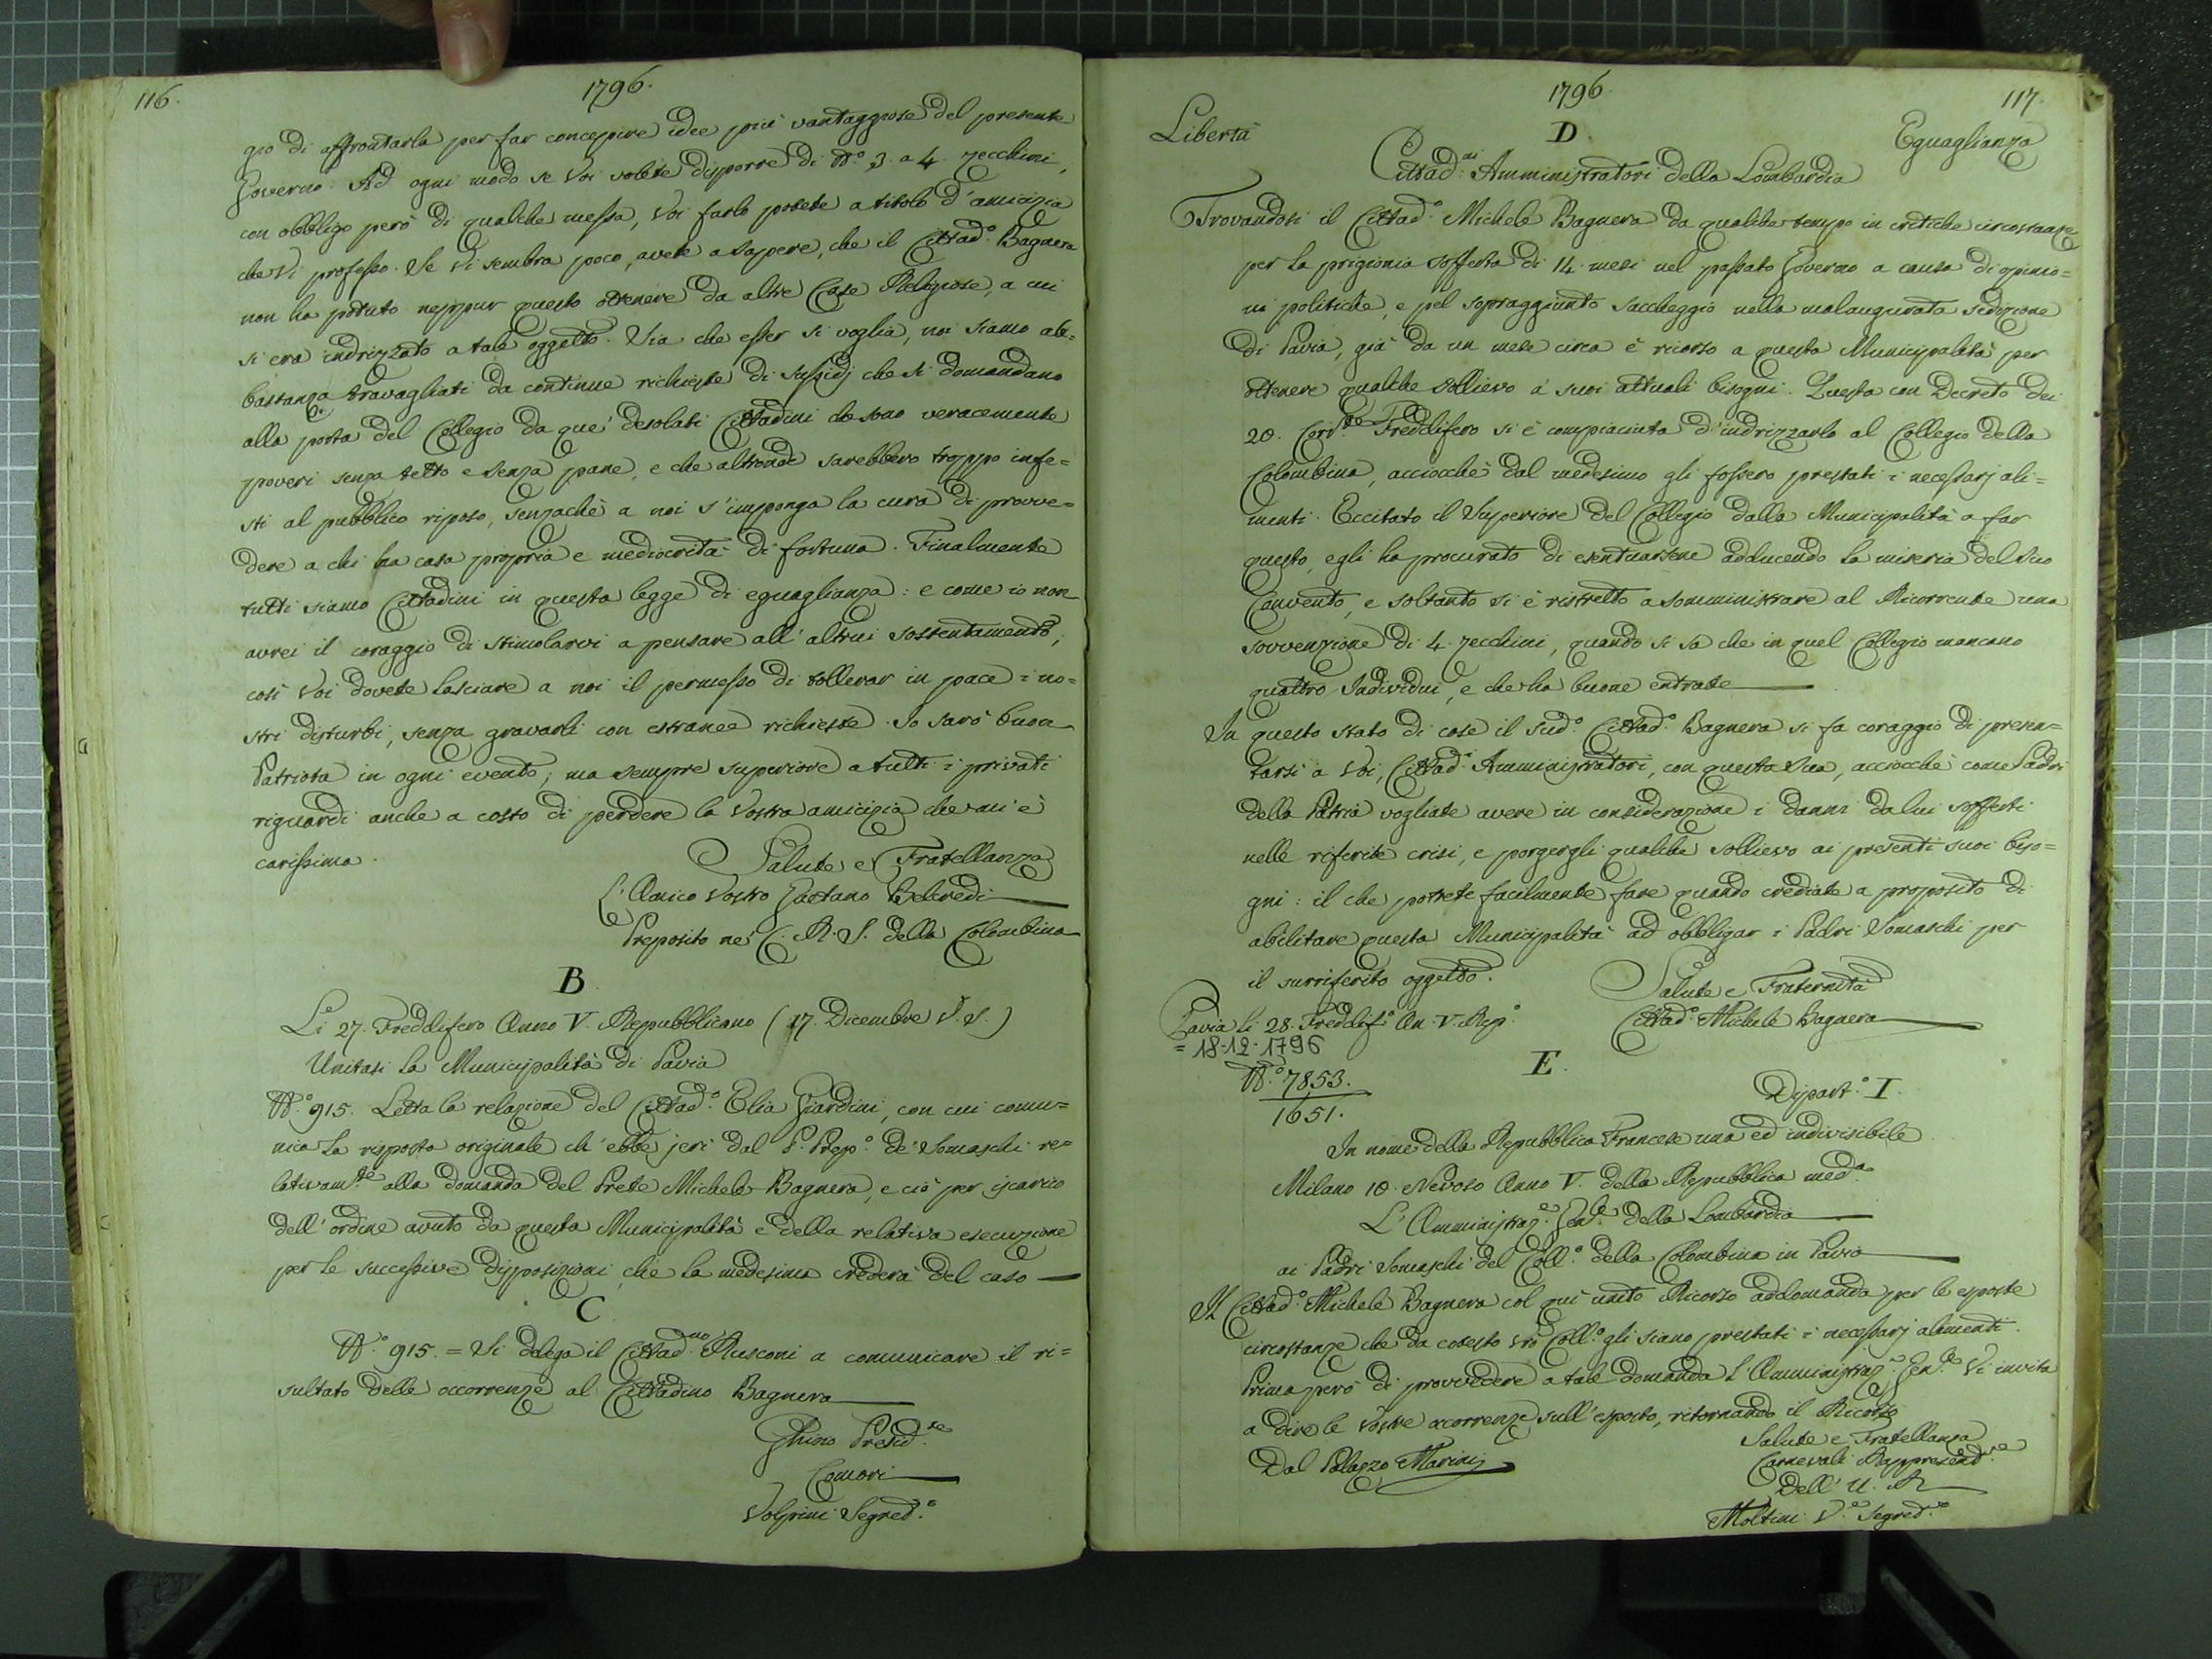 116.
1796.
gio di affrontarla per far concepire idee più vantaggiose del presente
Governo. Ad ogni modo se Voi volete disporre di N.° 3. a 4. zecchini,
con obbligo però di qualche messa, Voi farlo potete a titolo d'amicizia
che Vi professo. Se Vi sembra poco, avete a sapere, che il Cittad.° Bagnera
non ha potuto neppur questo ottenere da altre Case Religiose, a cui
si era indrizzato a tale oggetto. Sia che esser si voglia, noi siamo ab=
bastanza travagliati da continue richieste di sussidj che si domandano
alla porta del Collegio da que' desolati Cittadini che sono veracemente
poveri senza tetto e senza pane, e che altronde sarebbero troppo infe=
sti al pubblico riposo, senzachè a noi s'imponga la cura di provve=
dere a chi ha casa propria e mediocrità di fortuna. Finalmente
tutti siamo Cittadini in questa legge di eguaglianza: e come io non
avrei il coraggio di stimolarvi a pensare all'altrui sostentamento,
così Voi dovete lasciare a noi il permesso di tollerar in pace i no=
stri disturbi, senza gravarli con estranee richieste. Io sarò buon
Patriota in ogni evento; ma sempre superiore a tutti i privati
riguardi anche a costo di perdere la Vostra amicizia che mi è
carissima.
Salute e Fratellanza
L'Amico Vostro Gaetano Belcredi
Preposito ne' C. R. S. della Colombina
B
Li 27. Freddifero Anno V. Repubblicano (17. Dicembre V. S.)
Unitasi la Municipalità di Pavia
N.° 915. Letta la relazione del Cittad.° Elia Giardini, con cui comu=
nica la risposta originale ch'ebbe jeri dal P. Prep.° de' Somaschi re=
lativam.te alla domanda del Prete Michele Bagnera, e ciò per iscarico
dell'ordine avuto da questa Municipalità e della relativa esecuzione
per le successive disposizioni, che la medesima crederà del caso
C
N.° 915. = Si delega il Cittad.no Rusconi a comunicare il ri=
sultato delle occorrenze al Cittadino Bagnera
Ghisio Presid.te
Comori
Volpini Segret.°
1796
117.
Libertà
D.
Eguaglianza
Cittad.ni Amministratori della Lombardia
Trovandosi il Cittad.° Michele Bagnera da qualche tempo in critiche circostanze
per la prigionia sofferta di 14. mesi nel passato Governo a causa di opinio=
ni politiche, e pel sopraggiunto saccheggio nella malaugurata sedizione
di Pavia, già da un mese circa è ricorso a questa Municipalità per
ottenere qualche sollievo a' suoi attuali bisogni. Questa con Decreto dei
20. Corr.te Freddifero si è compiaciuta d'indrizzarlo al Collegio della
Colombina, acciocchè dal medesimo gli fossero prestati i necessarj ali=
menti. Eccitato il Superiore del Collegio dalla Municipalità a far
questo, egli ha procurato di esentuarsene adducendo la miseria del suo
Convento, e soltanto si è ristretto a somministrare al Ricorrente una
sovvenzione di 4. zecchini, quando si sa che in quel Collegio mancano
quattro Individui, e che ha buone entrate
In questo stato di cose il sud.° Cittad.° Bagnera si fa coraggio di presen=
tarsi a Voi, Cittad.i Amministratori, con questa Sua, acciocchè come Padri
della Patria vogliate avere in considerazione i danni da lui sofferti
nelle riferite crisi, e porgergli qualche sollievo ai presenti suoi biso=
gni: il che potrete facilmente fare quando crediate a proposito di
abilitare questa Municipalità ad obbligar i Padri Somaschi per
il surriferito oggetto.
Salute e Fraternità
Pavia li 28. Freddif.° An. V. Rep.°
Cittad.° Michele Bagnera
= 18-12-1796
N.° 7853.
1651.
E.
Dipart.° I.
In nome della Repubblica Francese una ed indivisibile
Milano 10. Nevoso Anno V. della Repubblica med.a
L'Amministraz.e Gen.le della Lombardia
ai Padri Somaschi del Coll.° della Colombina in Pavia
Il Cittad.° Michele Bagnera col qui unito Ricorso addomanda per le esposte
circostanze che da cotesto Vro Coll.° gli siano prestati i necessarj alimenti.
Prima però di provvedere a tale domanda l'Amministraz.e Gen.le Vi invita
a dire le Vostre occorrenze sull'esposto, ritornando il Ricorso
Salute e Fratellanza
Dal Palazzo Marini
Carnevali Rappresent.te
Dell' U. R
Moltini V.° Segret.°